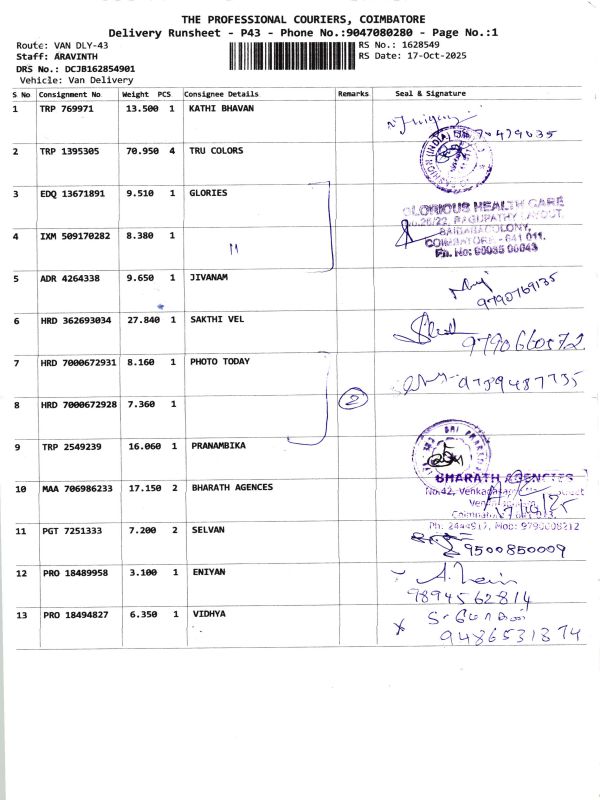 THE PROFESSIONAL COURIERS, COIMBATORE
Delivery Runsheet - P43 - Phone No.:9047080280 - Page No.:1
Route: VAN DLY-43
RS No.: 1628549
Staff: ARAVINTH
RS Date: 17-Oct-2025
DRS No.: DCJB162854901
Vehicle: Van Delivery
S No Consignment No Weight PCS Consignee Details Remarks Seal & Signature
1 TRP 769971 13.500 1 KATHI BHAVAN
2 TRP 1395305 70.950 4 TRU COLORS
3 EDQ 13671891 9.510 1 GLORIES
GLORIOUS HEALTH CARE
No.26/22, RAGUPATHY LAYOUT,
SAIBABACOLONY,
4 IXM 509170282 8.380 1 "
COIMBATORE - 641 011.
5 ADR 4264338 9.650 1 JIVANAM
9790769135
6 HRD 362693034 27.840 1 SAKTHI VEL
9790660572
7 HRD 7000672931 8.160 1 PHOTO TODAY
9789487735
8 HRD 7000672928 7.360 1 2
9 TRP 2549239 16.060 1 PRANAMBIKA
10 MAA 706986233 17.150 2 BHARATH AGENCES
BHARATH AGENCIES
No.42,
17/10/25
11 PGT 7251333 7.200 2 SELVAN
9500850009
12 PRO 18489958 3.100 1 ENIYAN
9894562814
13 PRO 18494827 6.350 1 VIDHYA
9486531374